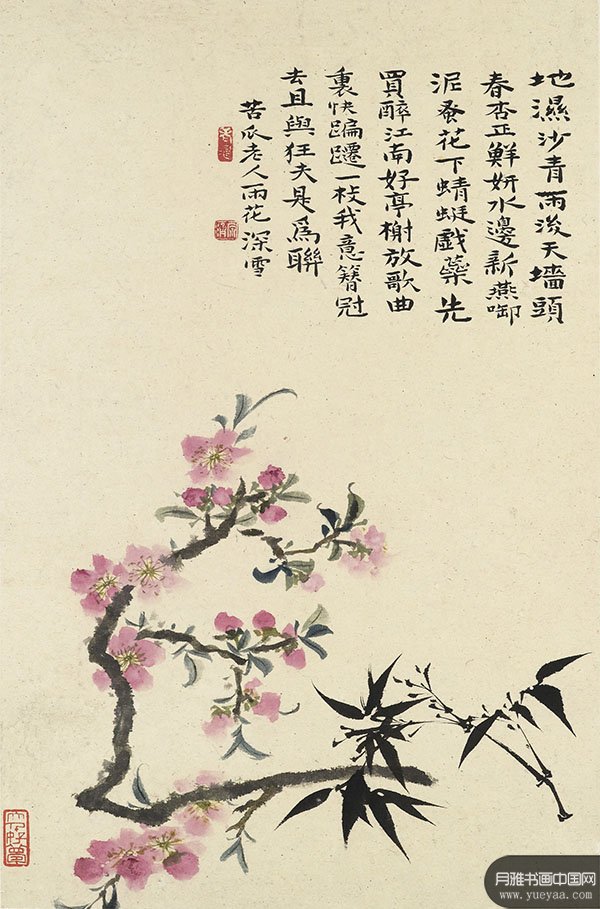 地濕沙青雨後天墻頭
春杏正鮮妍水邊新燕啣
泥蚤花下蜻蜓戲蘂先
買醉江南好亭榭放歌曲
裏快蹁躚一杖我意簪冠
去且與狂夫是為聯
苦瓜老人雨花深雪
月雅书画中国网
www.yueyaa.com